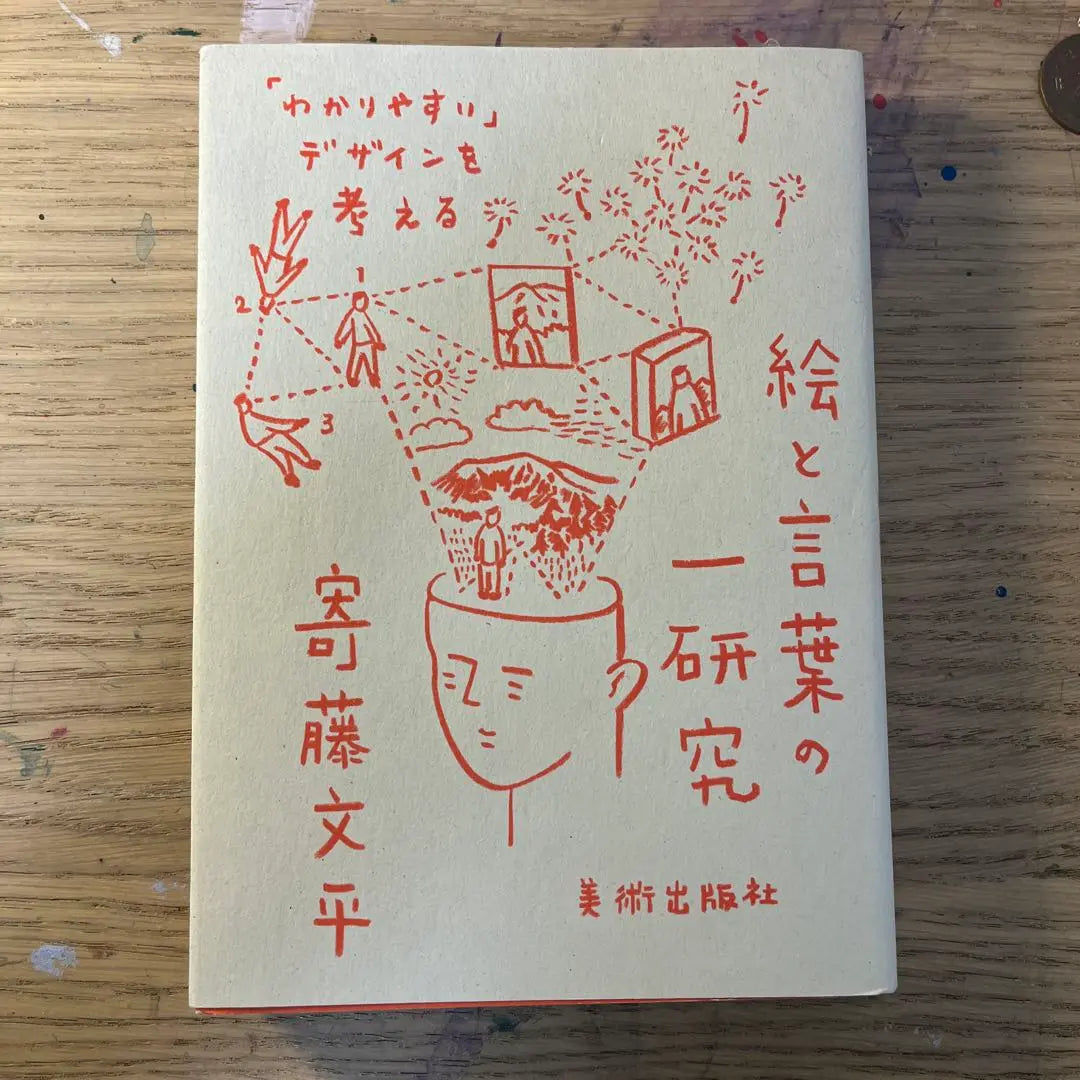 「わかりやすい」
デザインを
考える
絵と言葉の
一研究
寄藤文平
1
2
3
美術出版社